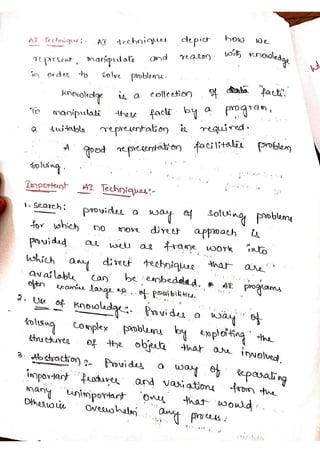 AI Technique:- AI techniques depict how we
represent, manipulate and reason with knowledge
in order to solve problems.
Knowledge is a collection of "facts".
To manipulate these facts by a program,
a suitable representation is required.
A good representation facilitates problem
solving.
Important AI Techniques:-
1. Search: provides a way of solving problems
for which no more direct approach is
provided as well as frame work into
which any direct techniques that are
available can be embedded. AI programs
often examine large of possibilities.
2. Use of Knowledge:- Provides a way of
solving complex problems by exploiting the
structures of the objects that are involved.
3. Abstraction:- Provides a way of separating
important features and variations from the
many unimportant ones that would
Otherwise overwhelm any process.